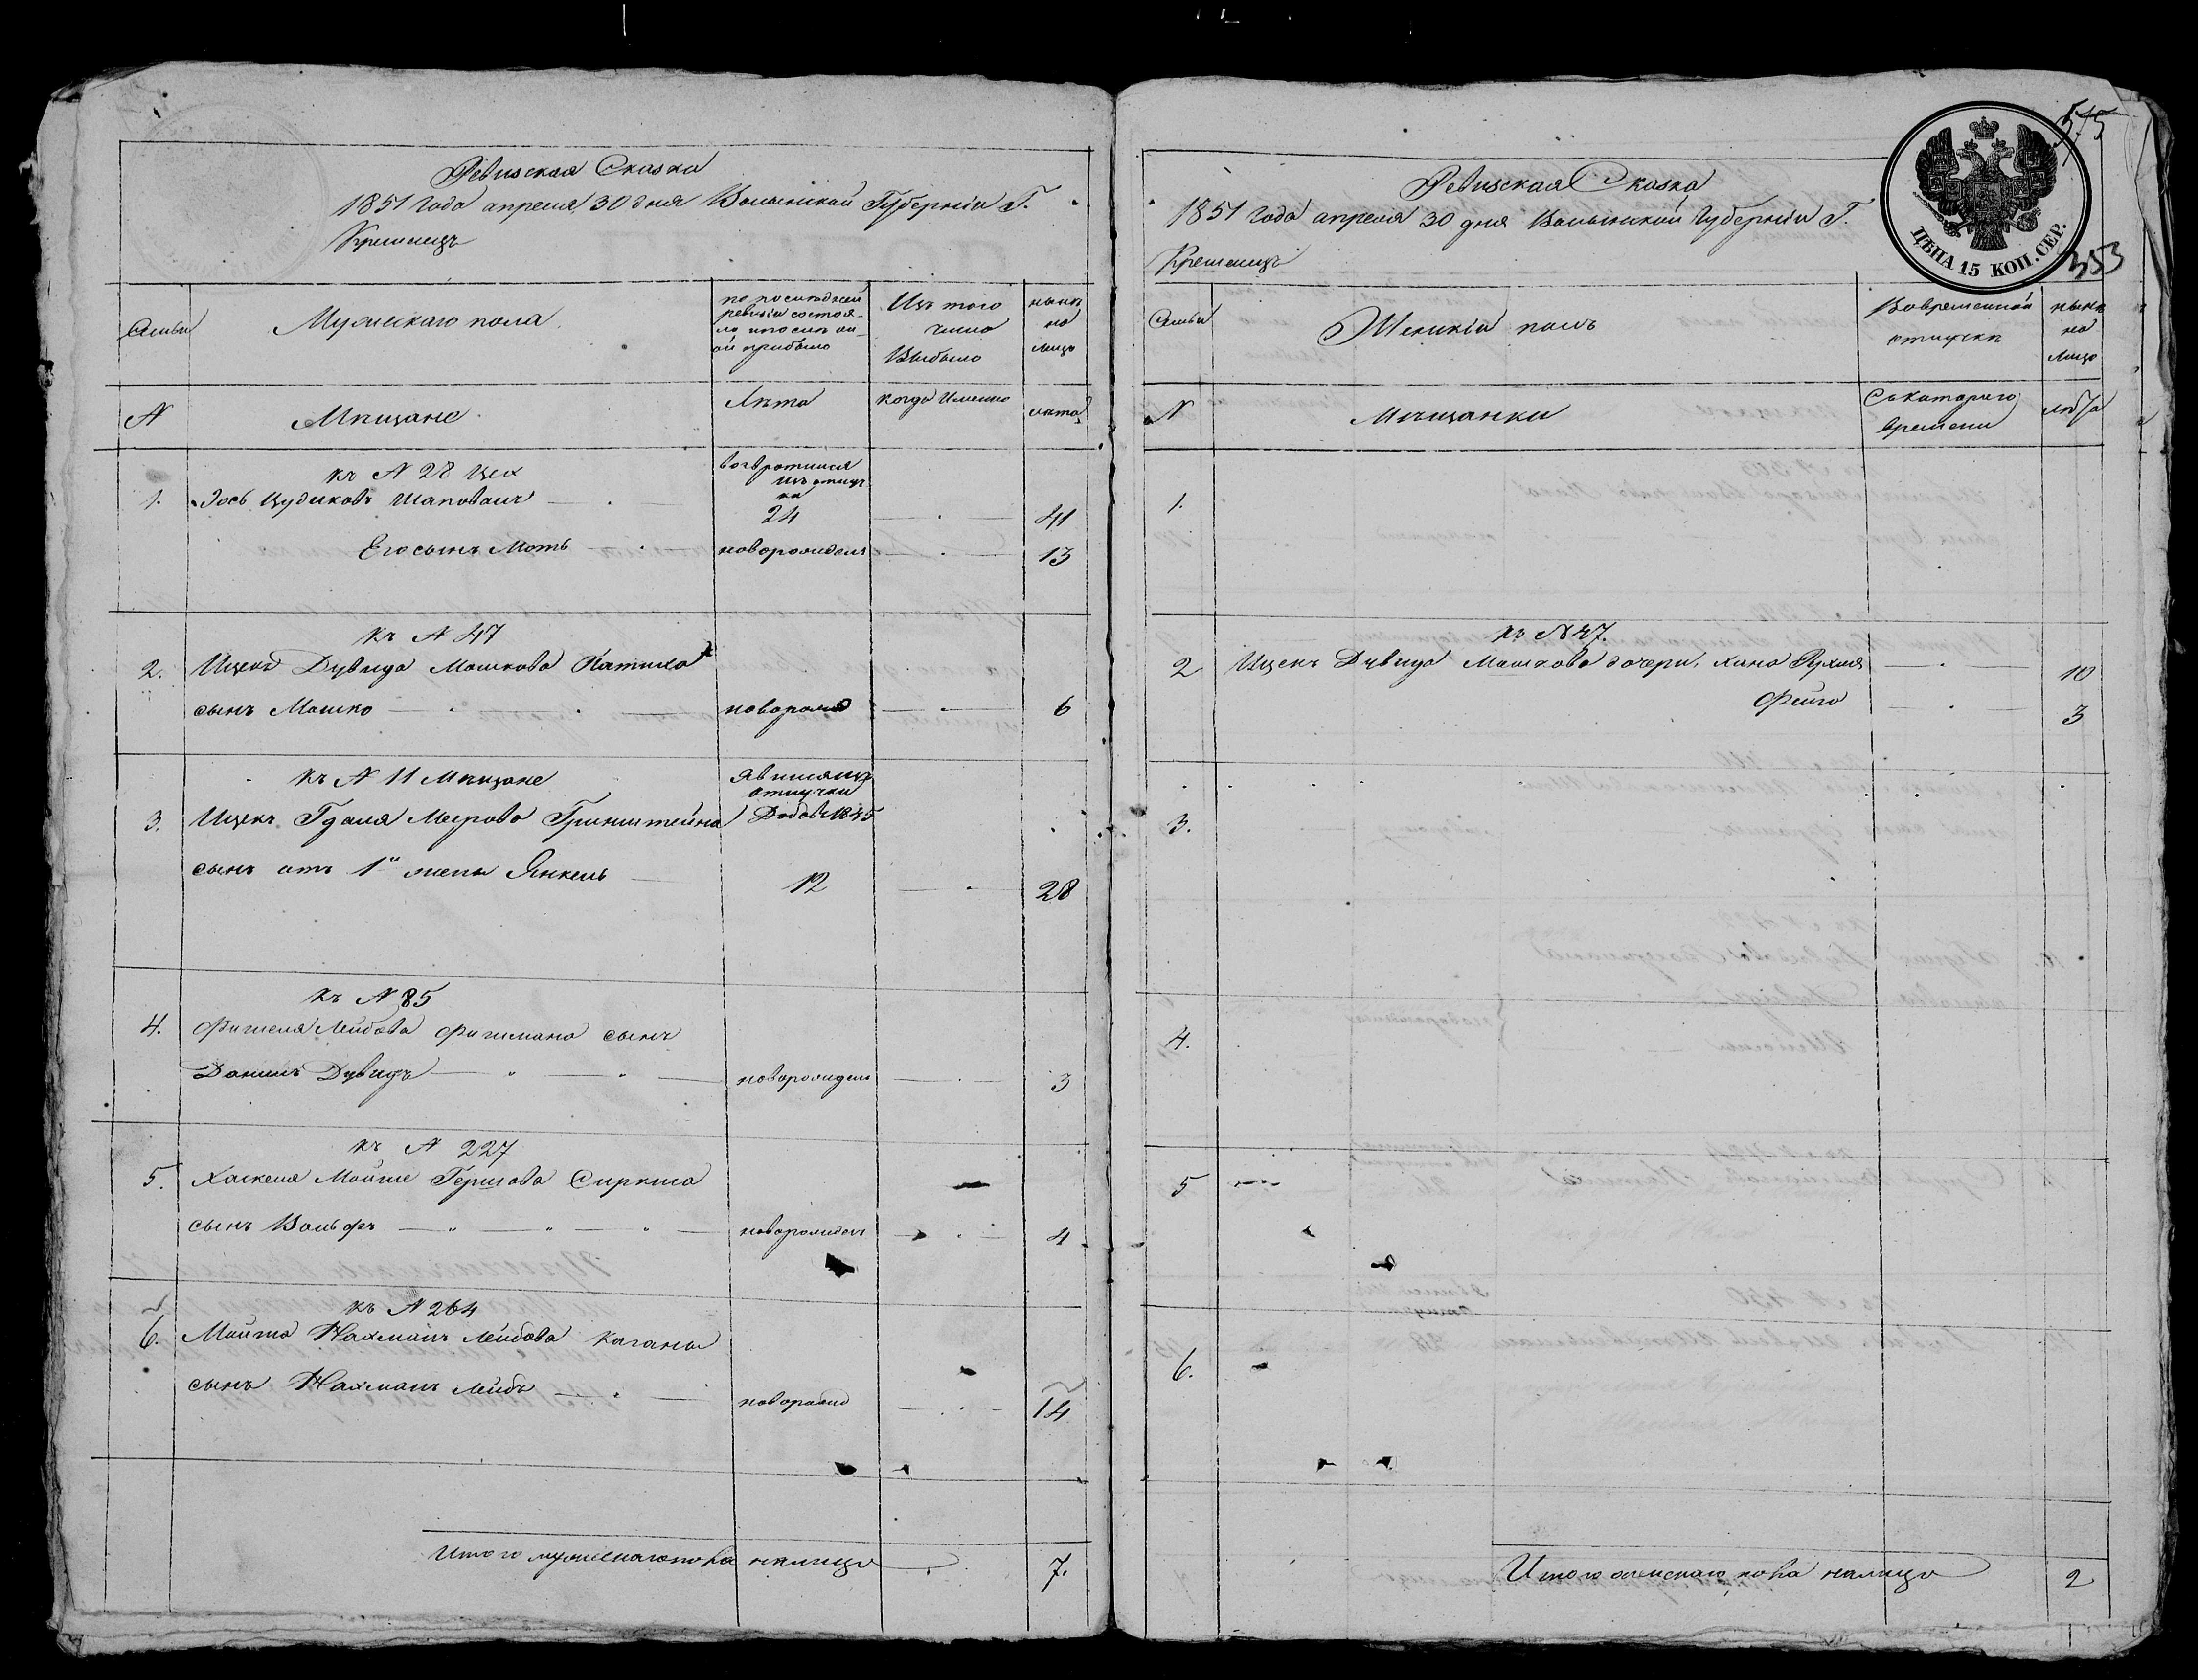 Ревизская Сказка
1851 года апреля 30 дня Волынской Губернiи Г.
Кременцъ
Семьи
Мужескаго пола
по последней
ревизiи состоя-
ло и после
ой прибыло
Изъ того
числа
Выбыло
нынѣ
на
лицо
№
Мѣщане
Лѣта
когда Именно
лѣта
къ № 28 Цех
возвратился
изъ отлуч
ки
1.
Iось Цудиковъ Шаповалъ
24
41
Его сынъ Моть
новорожденъ
13
къ № 47
2.
Ицекъ Дувида Мошкова Катика
сынъ Мошко
новорожд
6
къ № 11 Мѣщане
явился изъ
отлучки
3.
Ицекъ Гдаля Меерова Гринштейна
1845
сынъ отъ 1й жены Янкель
12
28
къ № 85
4.
Фишеля Лейбова Фишмана сынъ
Данилъ Дувидъ
новорожденъ
3
къ № 227
5.
Хаскеля Мойше Гершова Сиркиса
сынъ Вольфъ
новорожденъ
4
къ № 264
6.
Нахманъ Лейбова Кагана
сынъ Нахманъ Лейбъ
новорожд
14
Итого мужескаго пола налицо
7.
575
Ревизская Сказка
1851 года апреля 30 дня Волынской Губернiи Г.
Кременцъ
ЦѢНА 15 КОП. СЕР.
353
Семьи
Женскiй полъ
Вовременной
отлучкѣ
нынѣ
на
лицо
№
Мѣщанки
Съ котораго
времени
лѣта
1.
къ № 47.
2
Ицекъ Дувида Мошкова дочери, Хана Рухля
10
Фейга
3
3.
4.
5
6.
Итого женскаго пола налицо
2